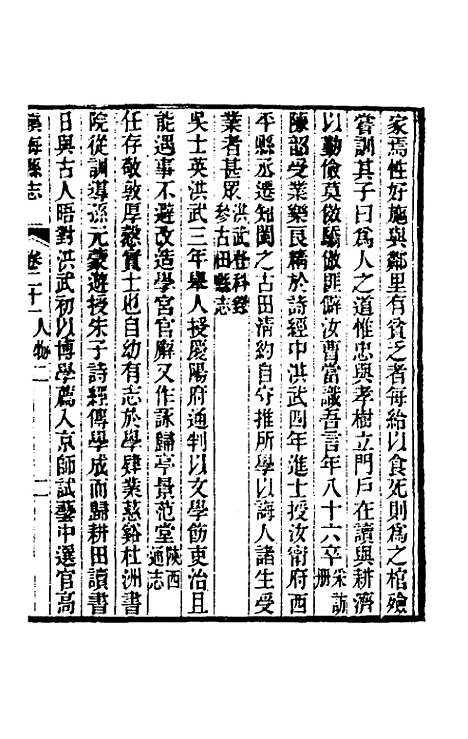 家焉性好施與鄰里有貧乏者每給以食死則為之棺殮
嘗訓其子曰為人之道惟忠與孝樹立門戶在讀與耕濟
以勤儉莫倣驕傲匪僻汝曹當識吾言年八十六卒采訪冊
陳韶受業樂良精於詩經中洪武四年進士授汝甯府西
平縣丞遷知閩之古田清約自守推所學以誨人諸生受
業者甚眾洪武登科錄參古田縣志
吳士英洪武三年舉人授慶陽府通判以文學飭吏治且
能遇事不避改造學宮官廨又作詠歸亭景范堂陝西通志
任存敬敦厚愨實士也自幼有志於學肄業慈谿杜洲書
院從訓導孫元蒙遊授朱子詩經傳學成而歸耕田讀書
日與古人晤對洪武初以博學薦入京師試藝中選官高
鎮海縣志 卷二十一 人物二 二